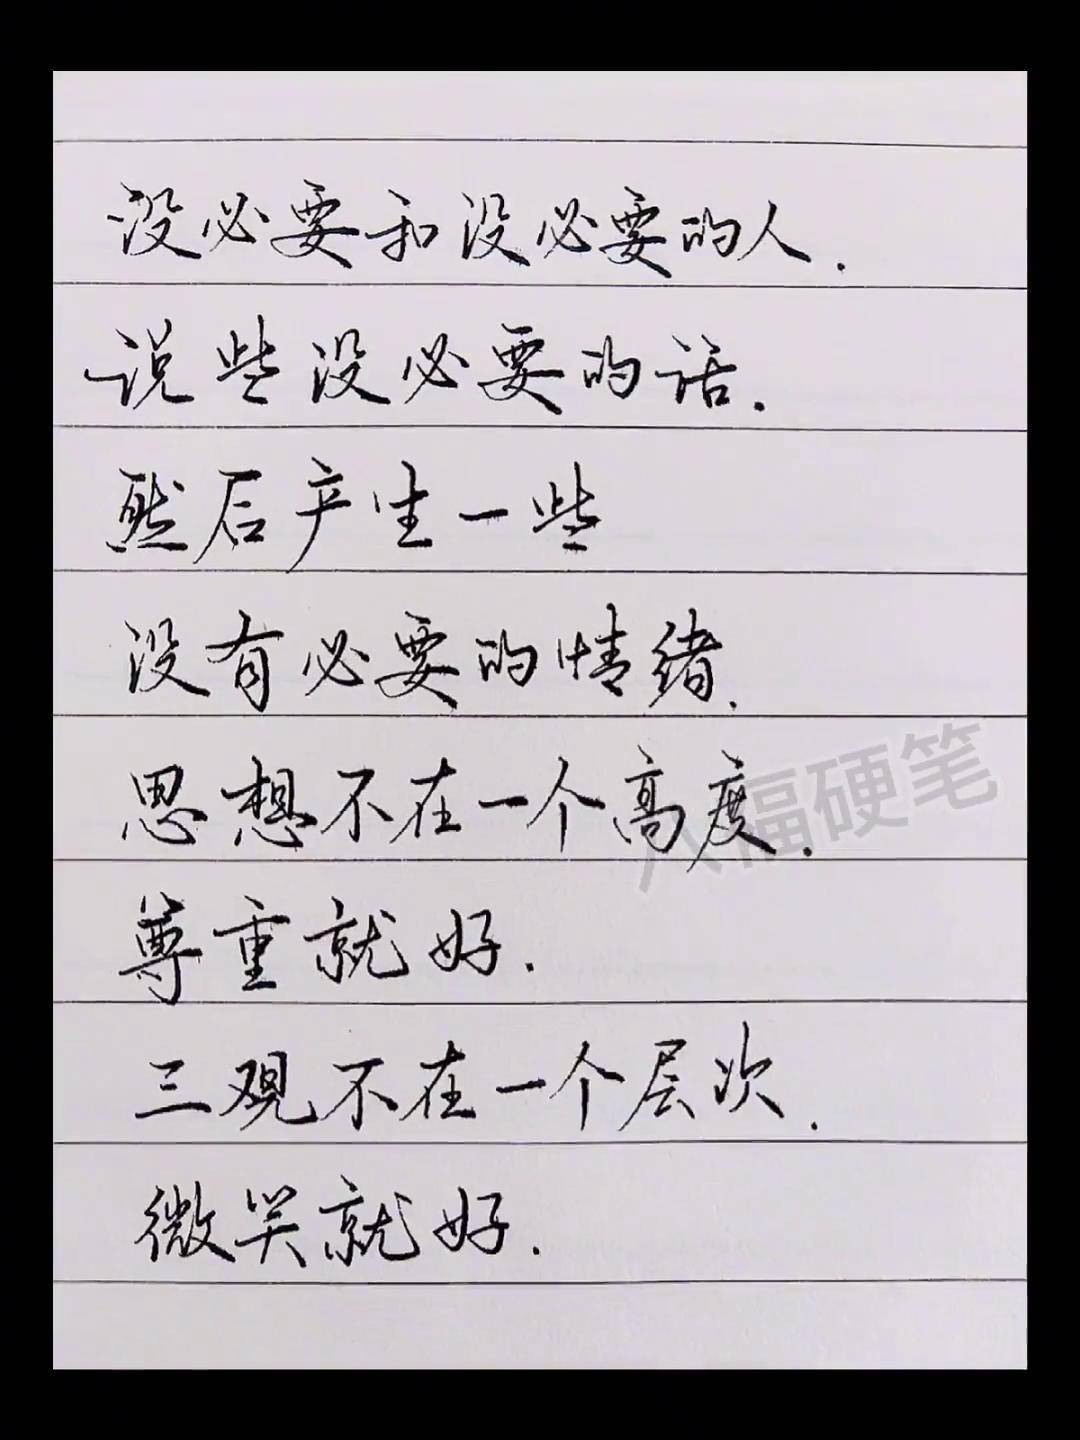 没必要和没必要的人.
说些没必要的话.
然后产生一些
没有必要的情绪.
思想不在一个高度.
尊重就好.
三观不在一个层次.
微笑就好.
八福硬笔